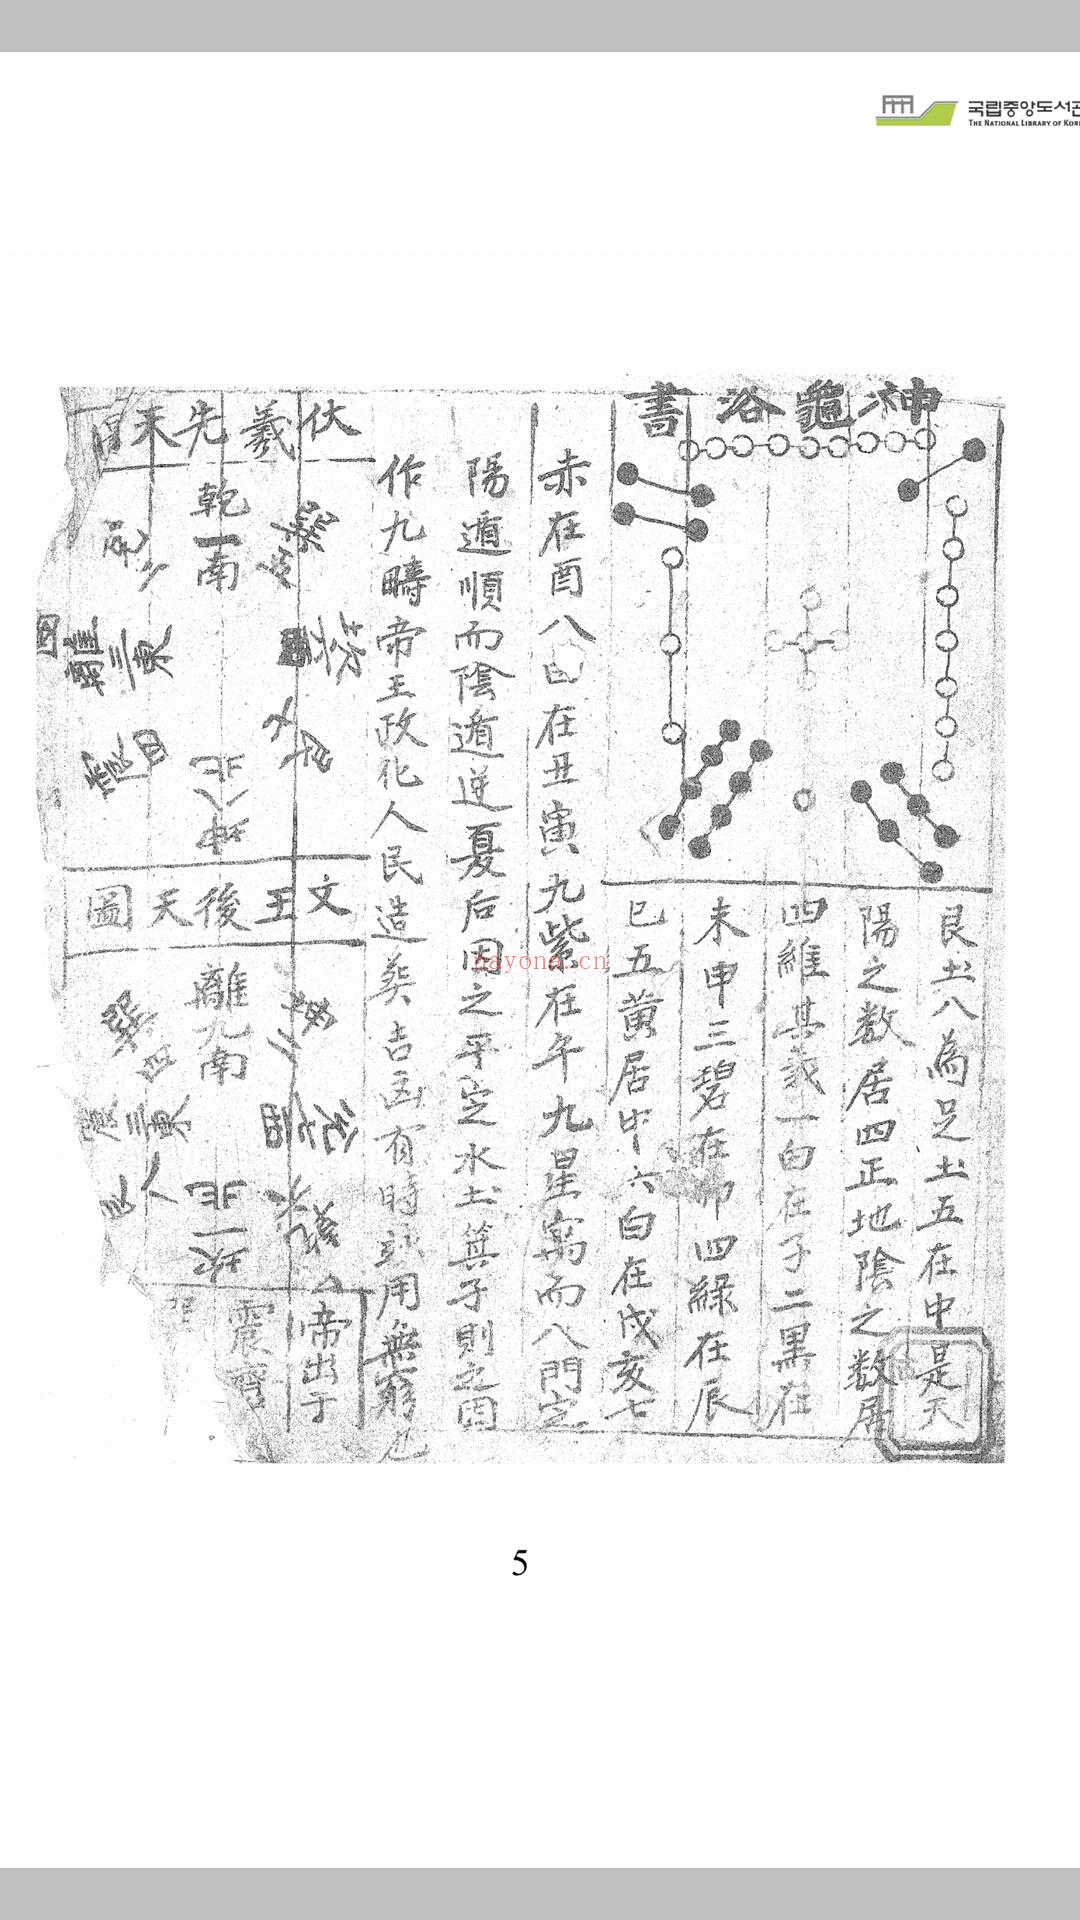 국립중앙도서관
THE NATIONAL LIBRARY OF KOREA
神龜洛書
艮土八為足土五在中是天
陽之数居四正地陰之数居
四維其義一白在子二黒在
未申三碧在卯四緑在辰
巳五黄居中六白在戌亥七
赤在酉八白在丑寅九紫在午九星寓而八門定
陽遁順而陰遁逆夏后因之平定水土箕子則之因
作九疇帝王政化人民造葬吉凶有時
用無窮也
伏羲先天圖
乾一南
巽五
坎西
艮七
坤八北
震四
離三東
兌二
文王後天圖
離九南
坤二
兌七西
乾六
坎一北
艮八
震三東
巽四
帝出于
震齊
巽
hayona.cn
5